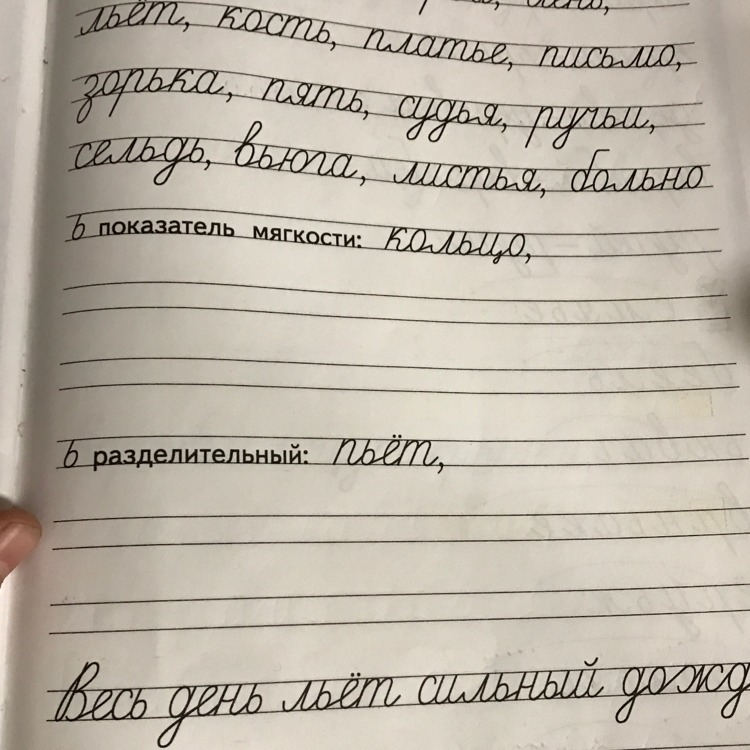 льёт, кость, платье, письмо,
зорька, пять, судья, ручьи,
сельдь, вьюга, листья, больно
ь показатель мягкости: кольцо,
ь разделительный: пьёт,
Весь день льёт сильный дожд